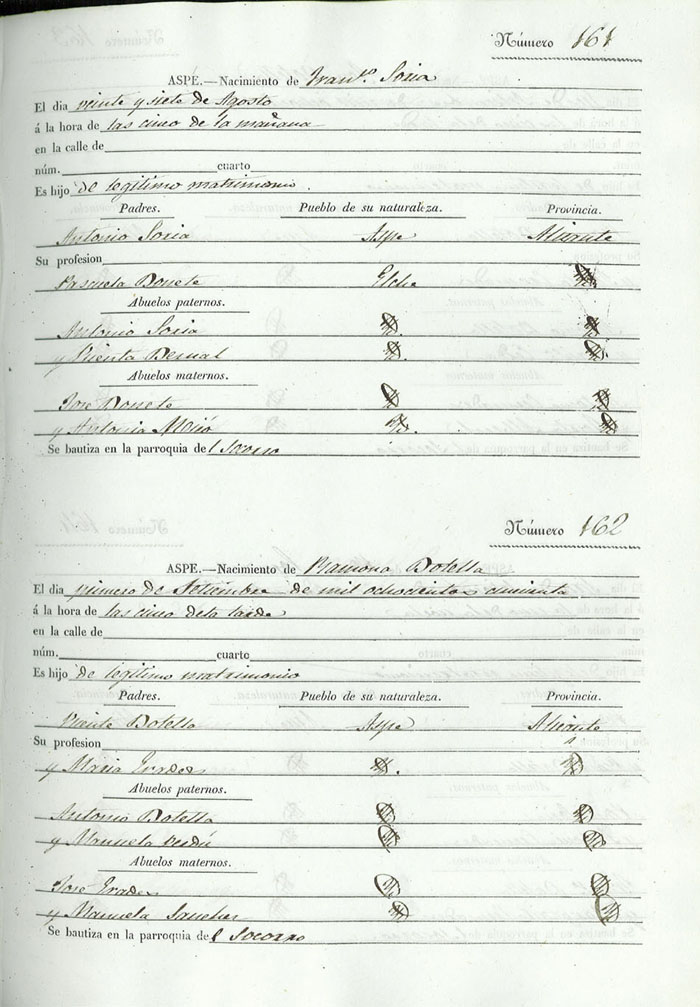 Número 161
ASPE.—Nacimiento de Franco. Soria
El dia veinte y siete de Agosto
á la hora de las cinco de la mañana
en la calle de
núm. cuarto
Es hijo de legitimo matrimonio.
Padres. Pueblo de su naturaleza. Provincia.
Antonio Soria Aspe Alicante
Su profesion
Pascuela Bonete Elche
Abuelos paternos.
Antonio Soria
y Vicenta Bernal
Abuelos maternos.
Jose Bonete
y Antonia
Se bautiza en la parroquia del Socorro
Número 162
ASPE.—Nacimiento de Ramona Botella
El dia primero de Setiembre de mil ochocientos cincuenta
á la hora de las cinco dela tarde
en la calle de
núm. cuarto
Es hijo de legitimo matrimonio
Padres. Pueblo de su naturaleza. Provincia.
Vicente Botella Aspe Alicante
Su profesion
y Maria Erades
Abuelos paternos.
Antonio Botella
y Manuela Verdú
Abuelos maternos.
Jose Erades
y Manuela Sanches
Se bautiza en la parroquia del Socorro